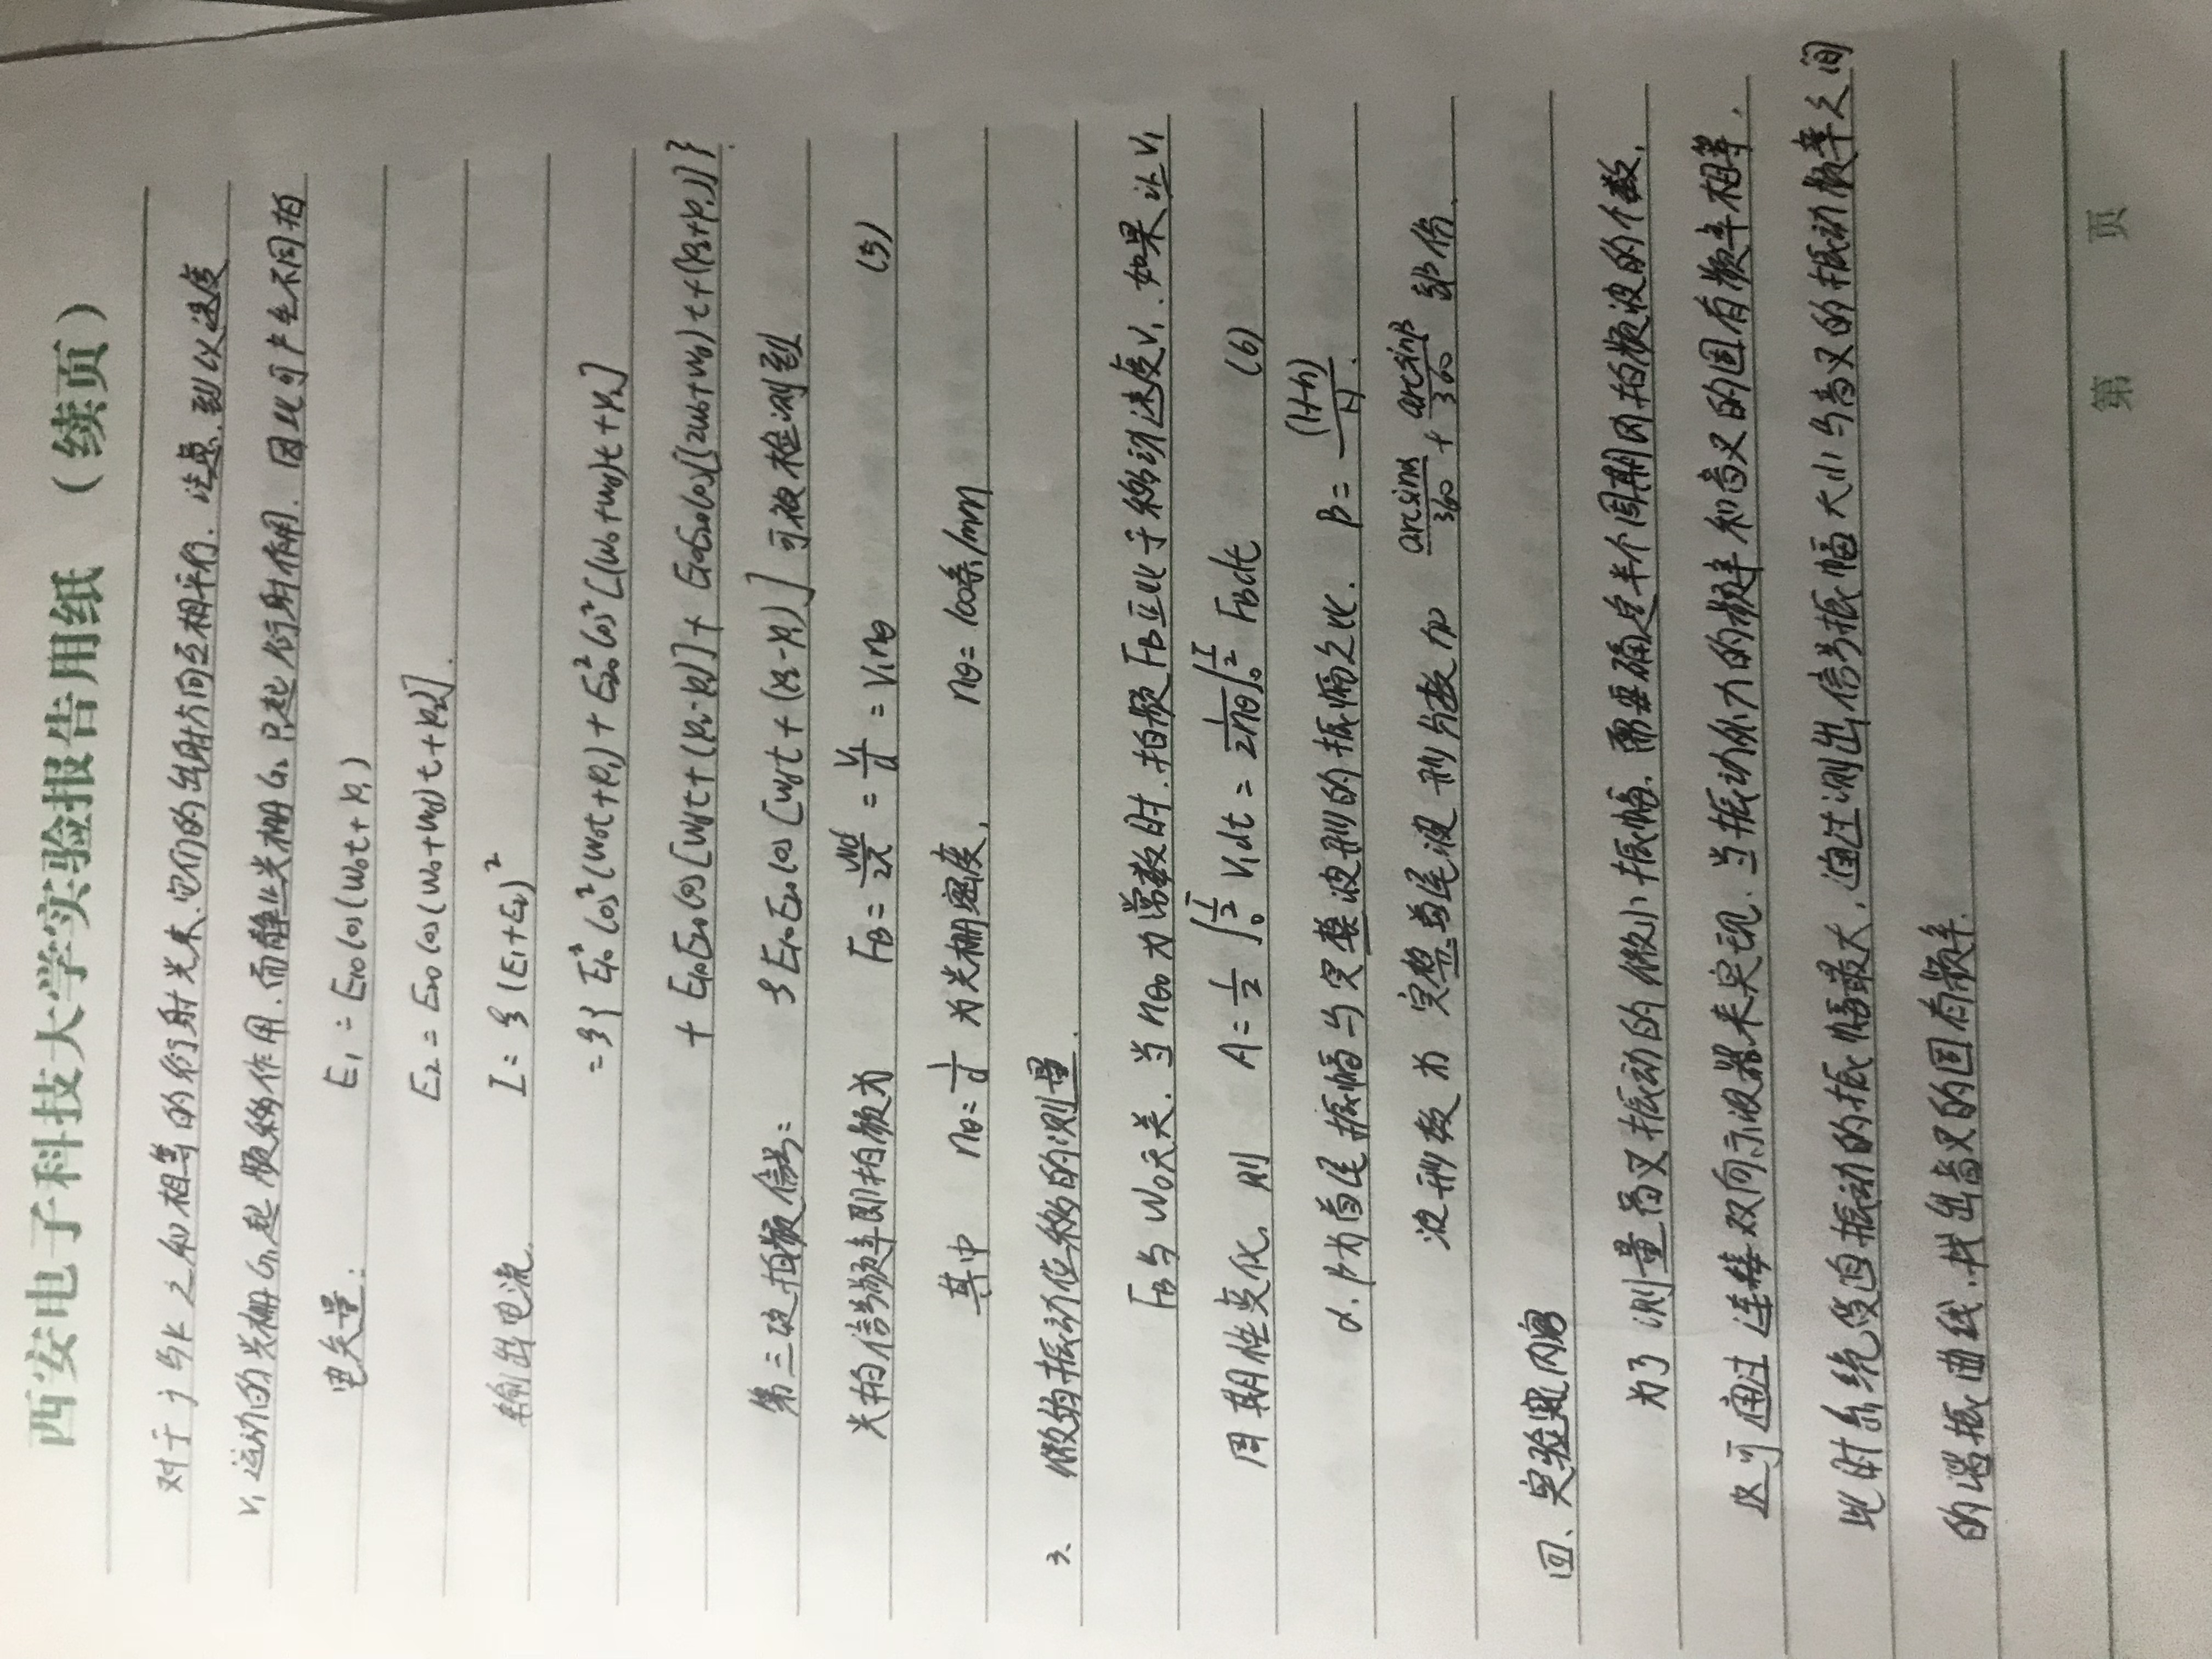 西安电子科技大学实验报告用纸 （续页）
对于j与k之和相等的衍射光束,它们的出射方向互相平行. 注意,到以速度
V₁运动的光栅G₁起频移作用,而静止光栅G₂只起衍射作用. 因此可产生不同拍
电矢量: E₁ = E₁₀cos(ω₀t+φ₁)
E₂ = E₂₀cos(ω₀+ωd)t+φ₂].
输出电流. I = ξ(E₁+E₂)²
=ξ{ E₁₀²cos²(ω₀t+φ₁) + E₂₀²cos²[(ω₀+ωd)t+φ₂]
+ E₁₀E₂₀cos[ωdt+(φ₂-φ₁)] + E₁₀E₂₀cos[(2ω₀+ωd)t+(φ₂+φ₁)]}.
第三项拍频信号: ξE₁₀E₂₀cos[ωdt+(φ₂-φ₁)] 可被检测到
光拍信号频率即拍频为 FB = ωd/2π = V₁/d = V₁nθ (5)
其中 nθ=1/d 为光栅密度, nθ=100条/mm
3、 微弱振动位移的测量.
FB与ω₀无关. 当nθ₀为常数时,拍频FB正比于移动速度V₁. 如果让V₁
周期性变化, 则 A = 1/2 ∫₀^(T/2) V₁dt = 1/(2nθ) ∫₀^(T/2) FBdt (6)
α、β为首尾振幅与完整波形的振幅之比. β= (H-h)/H.
波形数为 完整首尾波形分数加 arcsinα/360 + arcsinβ/360 部份.
四、实验内容
为了测量音叉振动的微小振幅,需要确定半个周期内拍频波的个数,
这可通过连接双向示波器来实现. 当振动外力的频率和音叉的固有频率相等,
此时系统受迫振动的振幅最大,通过测出信号振幅大小与音叉的振动频率之间
的谐振曲线,找出音叉的固有频率.
第 页